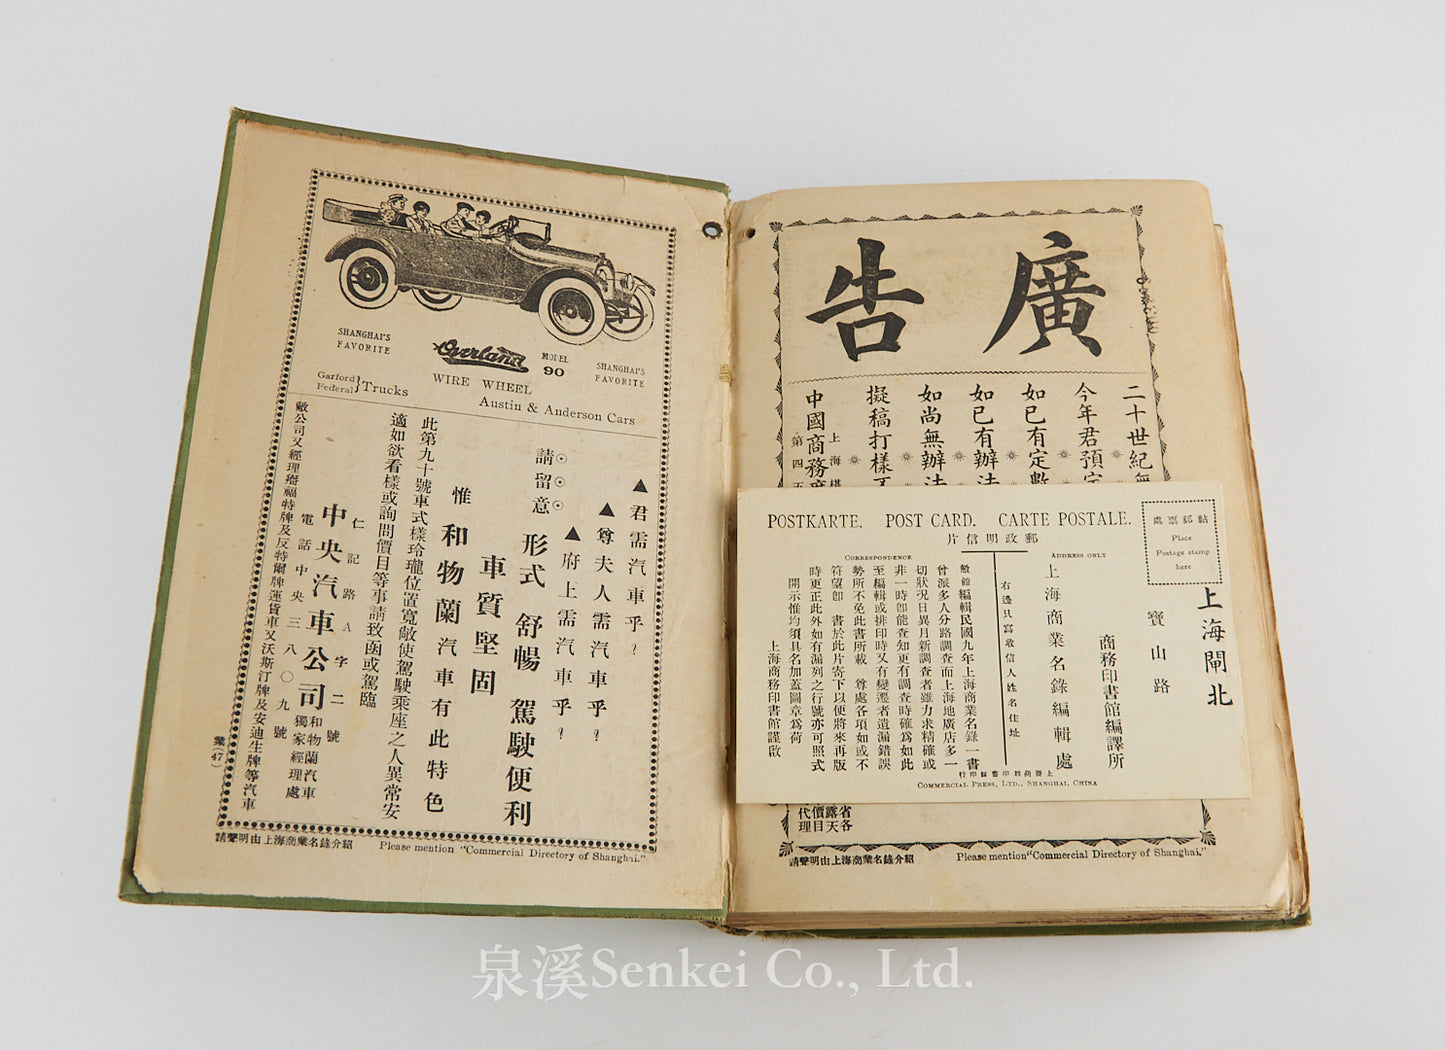 SHANGHAI'S
FAVORITE
Overland
MODEL
90
SHANGHAI'S
FAVORITE
WIRE WHEEL
Garford
Federal
Trucks
Austin & Anderson Cars
▲君需汽車乎？
▲尊夫人需汽車乎？
▲府上需汽車乎？
請留意
形式舒暢駕駛便利
車質堅固
惟和物蘭汽車有此特色
此第九十號車式樣玲瓏位置寬敞使駕駛乘座之人異常安
適如欲看樣或詢問價目等事請致函或駕臨
仁記路A字二號
中央汽車公司
和物蘭汽車
獨家經理處
電話中央三八〇九號
敝公司又經理搿福特牌及反特爾牌運貨車又沃斯汀牌及安迪生牌等汽車
業(47)
請聲明由上海商業名錄介紹
Please mention "Commercial Directory of Shanghai."
廣告
二十世紀無
今年君預定
如已有定數
如已有辦法
如尚無辦法
擬稿打樣
中國商務
上海
第四五
省各
露天
價目
代理
請聲明由上海商業名錄介紹
Please mention "Commercial Directory of Shanghai."
POSTKARTE. POST CARD. CARTE POSTALE.
郵政明信片
黏郵票處
Place
Postage stamp
here
CORRESPONDENCE
ADDRESS ONLY
上海閘北
寶山路
商務印書館編譯所
上海商業名錄編輯處
右邊只寫收信人姓名住址
敝館編輯民國九年上海商業名錄一書
曾派多人分路調查而上海地廣店多一
切狀況日異月新調查者雖力求精確或
非一時卽能查知更有調查時確爲如此
至編輯或排印時又有變遷者遺漏錯誤
勢所不免此書所載尊處各項如或不
符望卽書於此片寄下以便將來再版
時更正此外如有漏列之行號亦可照式
開示惟均須具名加蓋圖章爲荷
上海商務印書館謹啟
上海商務印書館印行
COMMERCIAL PRESS, LTD., SHANGHAI, CHINA
泉溪Senkei Co., Ltd.